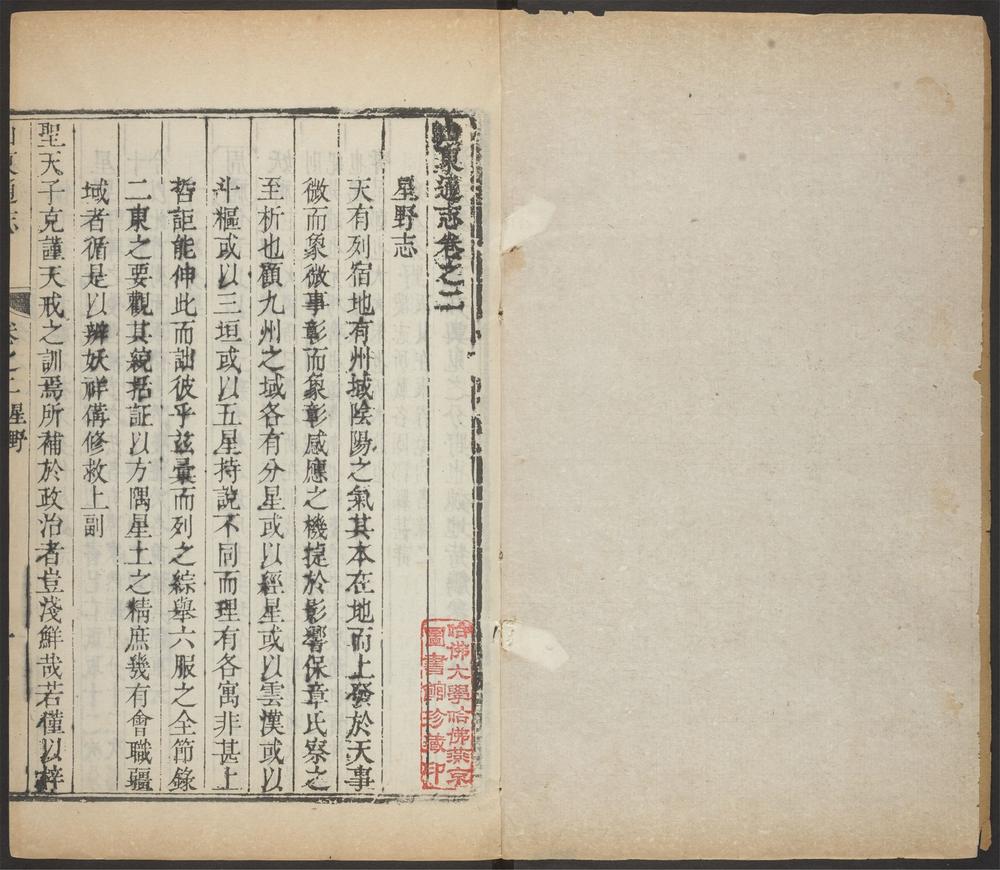 山東通志卷之二
星野志
天有列宿地有州域陰陽之氣其本在地而上發於天事
微而象微事彰而象彰感應之機捷於影響保章氏察之
至析也顧九州之域各有分星或以經星或以雲漢或以
斗樞或以三垣或以五星持說不同而理有各寓非甚上
哲詎能伸此而詘彼乎茲彙而列之綜舉六服之全節錄
二東之要觀其統括証以方隅星土之精庶幾有會職疆
域者循是以辨妖祥備修救上副
聖天子克謹天戒之訓焉所補於政治者豈淺鮮哉若僅以梓
山東通志
卷之二星野
一
哈佛大學哈佛燕京
圖書館珍藏印